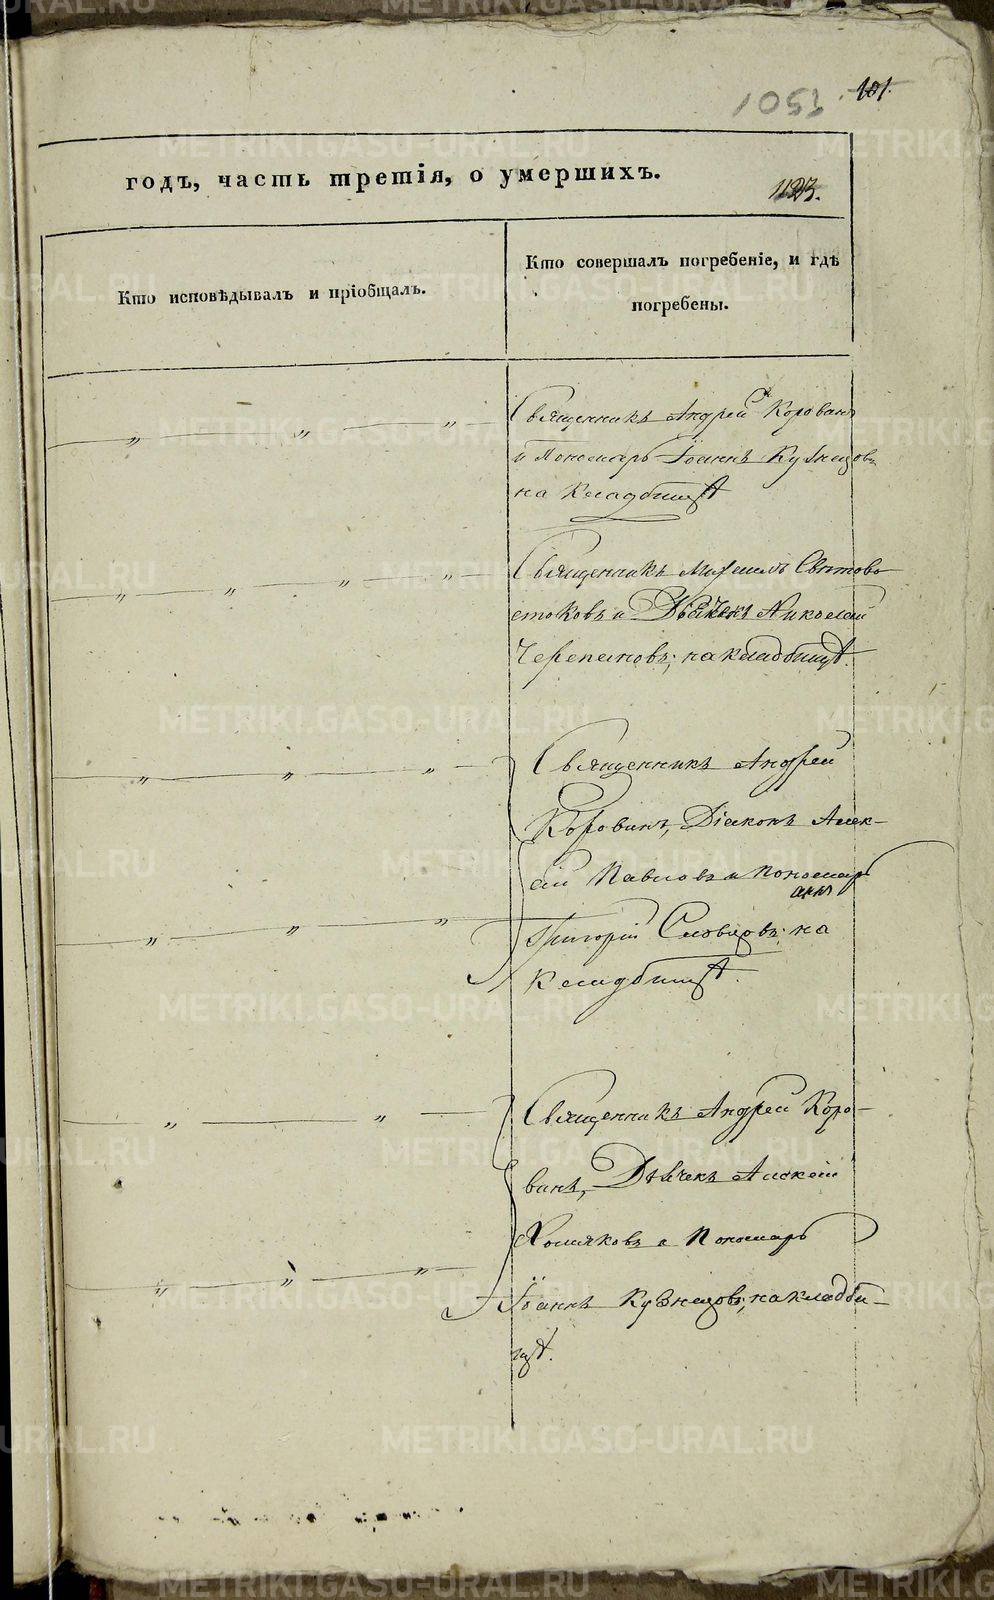 1053 101.
годъ, часть третія, о умершихъ.
1123.
Кто исповѣдывалъ и пріобщалъ.
Кто совершалъ погребеніе, и гдѣ
погребены.
Священникъ Андрей Корованъ
и Пономарь Іоаннъ Кузнецовъ
на Кладбищѣ
Священникъ Михаилъ Свѣтово
стоковъ и Дьячекъ Николай
Черепановъ; на кладбищѣ.
Священникъ Андрей
Коровинъ, Діаконъ Алек-
сѣй Павловъ и Пономарь
Григорій Словцовъ; на
Кладбищѣ.
Священникъ Андрей Коро-
винъ, Дьячекъ Алексѣй
Хомяковъ и Пономарь
Іоаннъ Кузнецовъ; на кладби-
щѣ.
METRIKI.GASO-URAL.RU